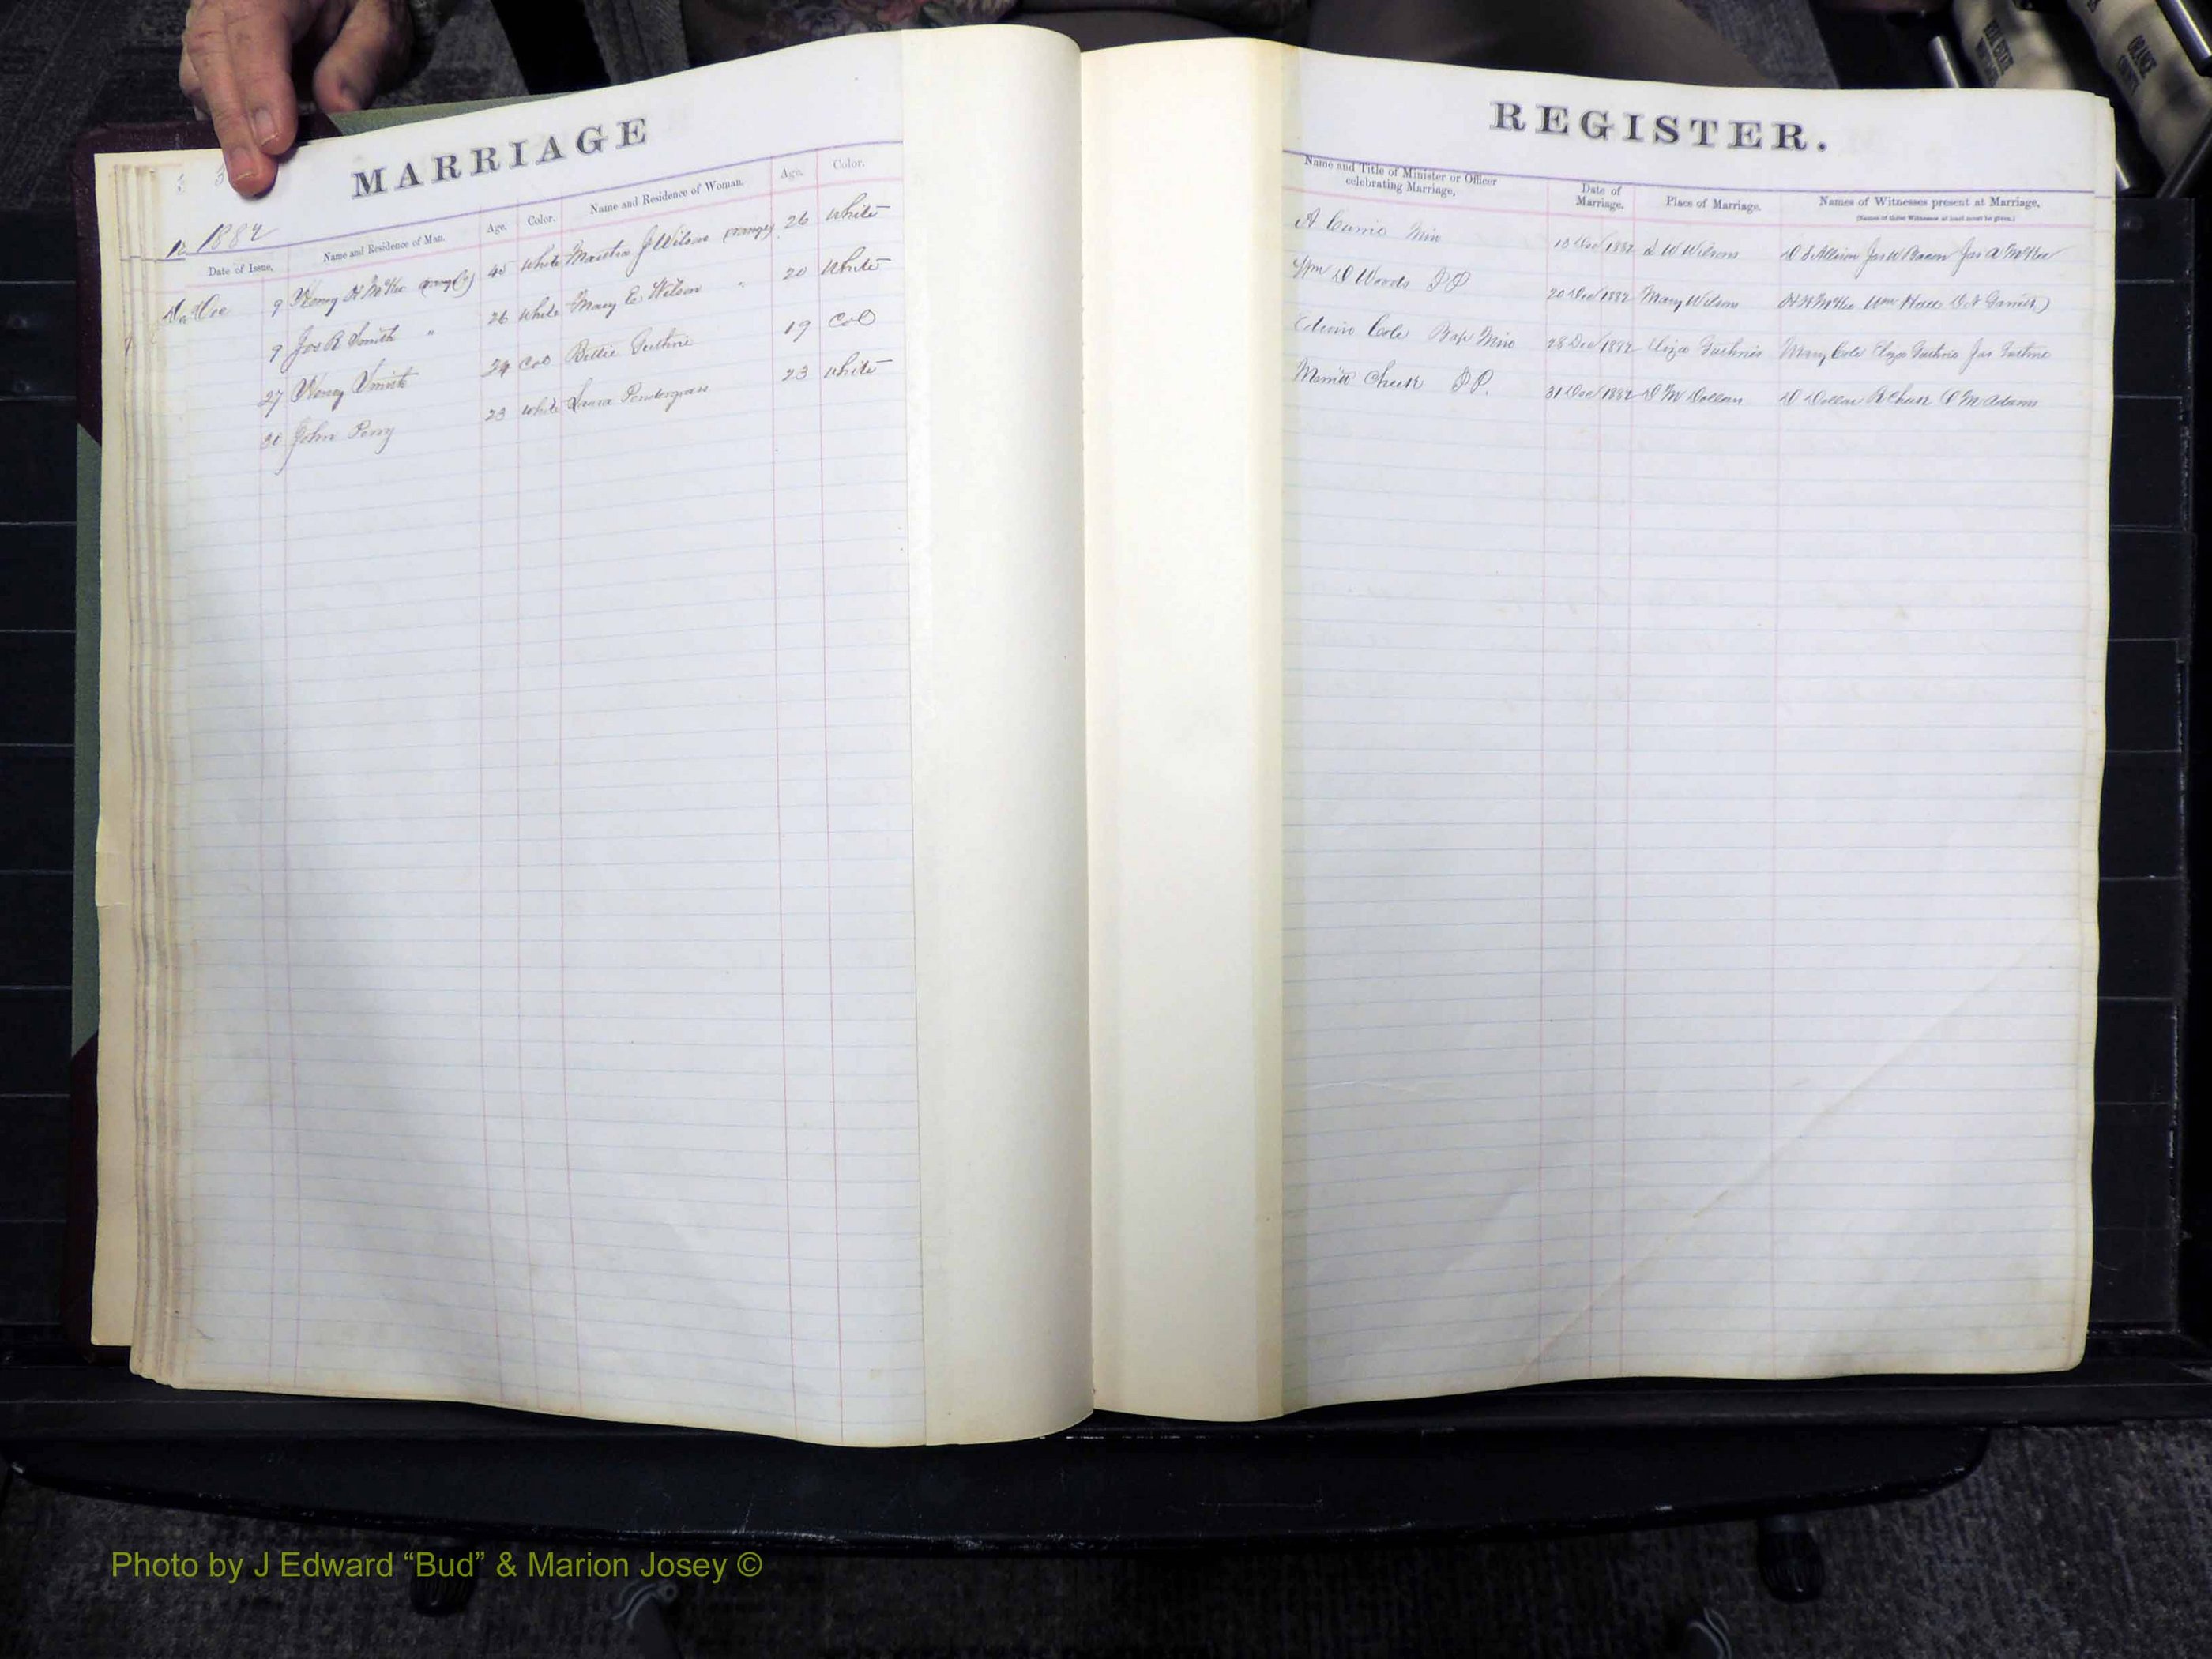 MARRIAGE
1882
Date of Issue. Name and Residence of Man. Age. Color. Name and Residence of Woman. Age. Color.
Dec 9 Henry H McKee 40 White Martha J Wilson 26 White
9 Jos R Smith " 26 White Mary E Wilson " 20 White
27 Henry 24 Col Bettie Guthrie 19 Col
30 John Perry 23 White Laura Pendergrass 23 White
REGISTER.
Name and Title of Minister or Officer celebrating Marriage. Date of Marriage. Place of Marriage. Names of Witnesses present at Marriage.
(Names of three Witnesses at least must be given.)
A Currie Min 13 Dec 1882 W Wilsons D S Allison Jas W Bacon Jas A McKee
Wm D Woods JP 20 Dec 1882 Mary Wilsons H H McKee Wm Hall
Edwin Cole Bap Min 28 Dec 1882 Eliza Guthries Mary Cole Eliza Guthrie Jas Guthrie
Merritt Cheek JP. 31 Dec 1882 D M Dollars D Dollar Adams
ORANGE COUNTY
Photo by J Edward “Bud” & Marion Josey ©